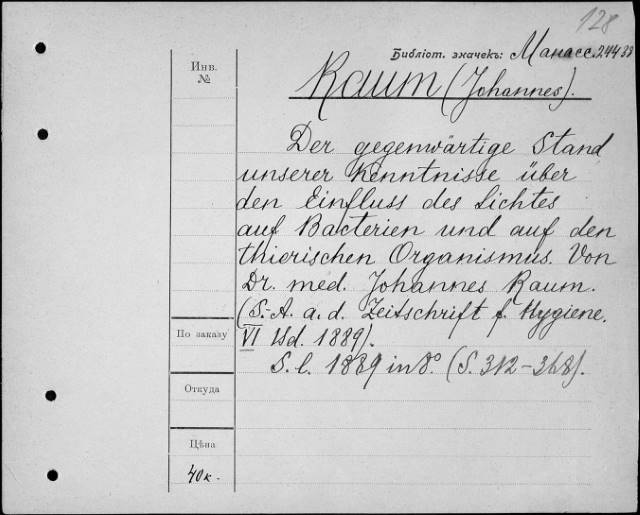 128
Библіот. значекъ: Манасс. 24433
Инв.
№
Raum (Johannes).
Der gegenwärtige Stand
unserer Kenntnisse über
den Einfluss des Lichtes
auf Bacterien und auf den
thierischen Organismus. Von
Dr. med. Johannes Raum.
(S.-A. a. d. Zeitschrift f. Hygiene.
VI Bd. 1889).
S. l. 1889 in 8°. (S. 312-368).
По заказу
Откуда
Цѣна
40 к.